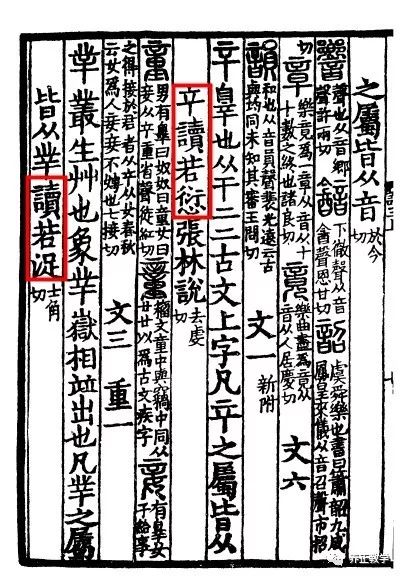 之屬皆从音 於今切
響 聲也从音鄉聲許兩切 韽 下徹聲从音酓聲恩甘切 韶 虞舜樂也書曰簫韶九成鳳皇來儀从音召聲市招
切 章 樂竟為一章从音从十十數之終也諸良切 竟 樂曲盡為竟从音从人居慶切 文六
韻 和也从音員聲裴光遠云古與均同未知其審王問切 文一 新附
䇂 辠也从干二二古文上字凡䇂之屬皆从
䇂讀若愆張林說 去虔切
童 男有辠曰奴奴曰童女曰妾从䇂重省聲徒紅切 籒文童中與竊中同从廿廿以為古文疾字 妾 有辠女子給事
之得接於君者从䇂从女春秋云女為人妾妾不娉也七接切 文三 重一
丵 叢生艸也象丵嶽相竝出也凡丵之屬
皆从丵讀若浞 士角切